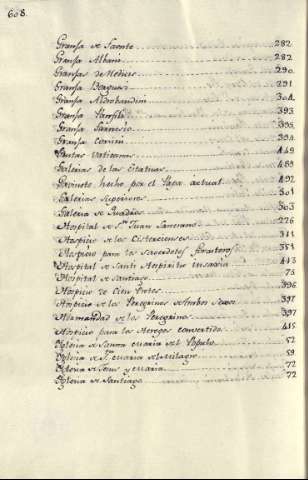 608.
Granja de Sacote 282
Granja Albano 282
Granjas de Medicis 290
Granja Borguesi 291
Granja Aldobrandini 304
Granja Pamfili 393
Granja Farnesio 395
Granja Corsini 394
Grutas Vaticanas 449
Galerias de las Estatuas 488
Gavinete hecho por el Papa actual 492
Galerias Superiores 501
Galeria de Quadros 503
Hospital de Sn. Juan Lateranense 226
Hospicio de los Cistercienses 311
Hospicio para los Sacerdotes forasteros 351
Hospital de Santi Spiritus in Saxia 413
Hospital de Santiago 75
Hospicio de Cien Pretes 396
Hospicio de los Peregrinos de Ambos Sexos 397
Hermandad de los Peregrinos 397
Hospicio para los Hereges convertidos 415
Yglesia de Santa Maria del Populo 52
Yglesia de Sta. Maria del Milagro 59
Yglesia de Jesus y Maria 72
Yglesia de Santiago 72